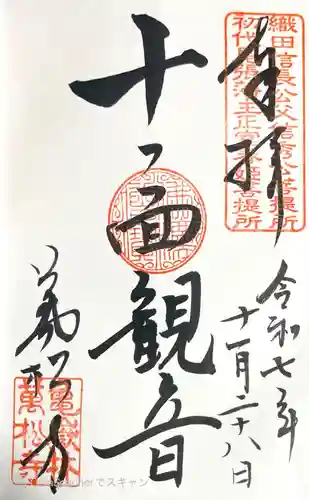 奉拝
織田信長公父信秀公菩提所
初代尾張藩主正室春姫菩提所
令和七年
十一月二十八日
十一面観音
萬松寺
亀嶽林
萬松寺
でスキャン